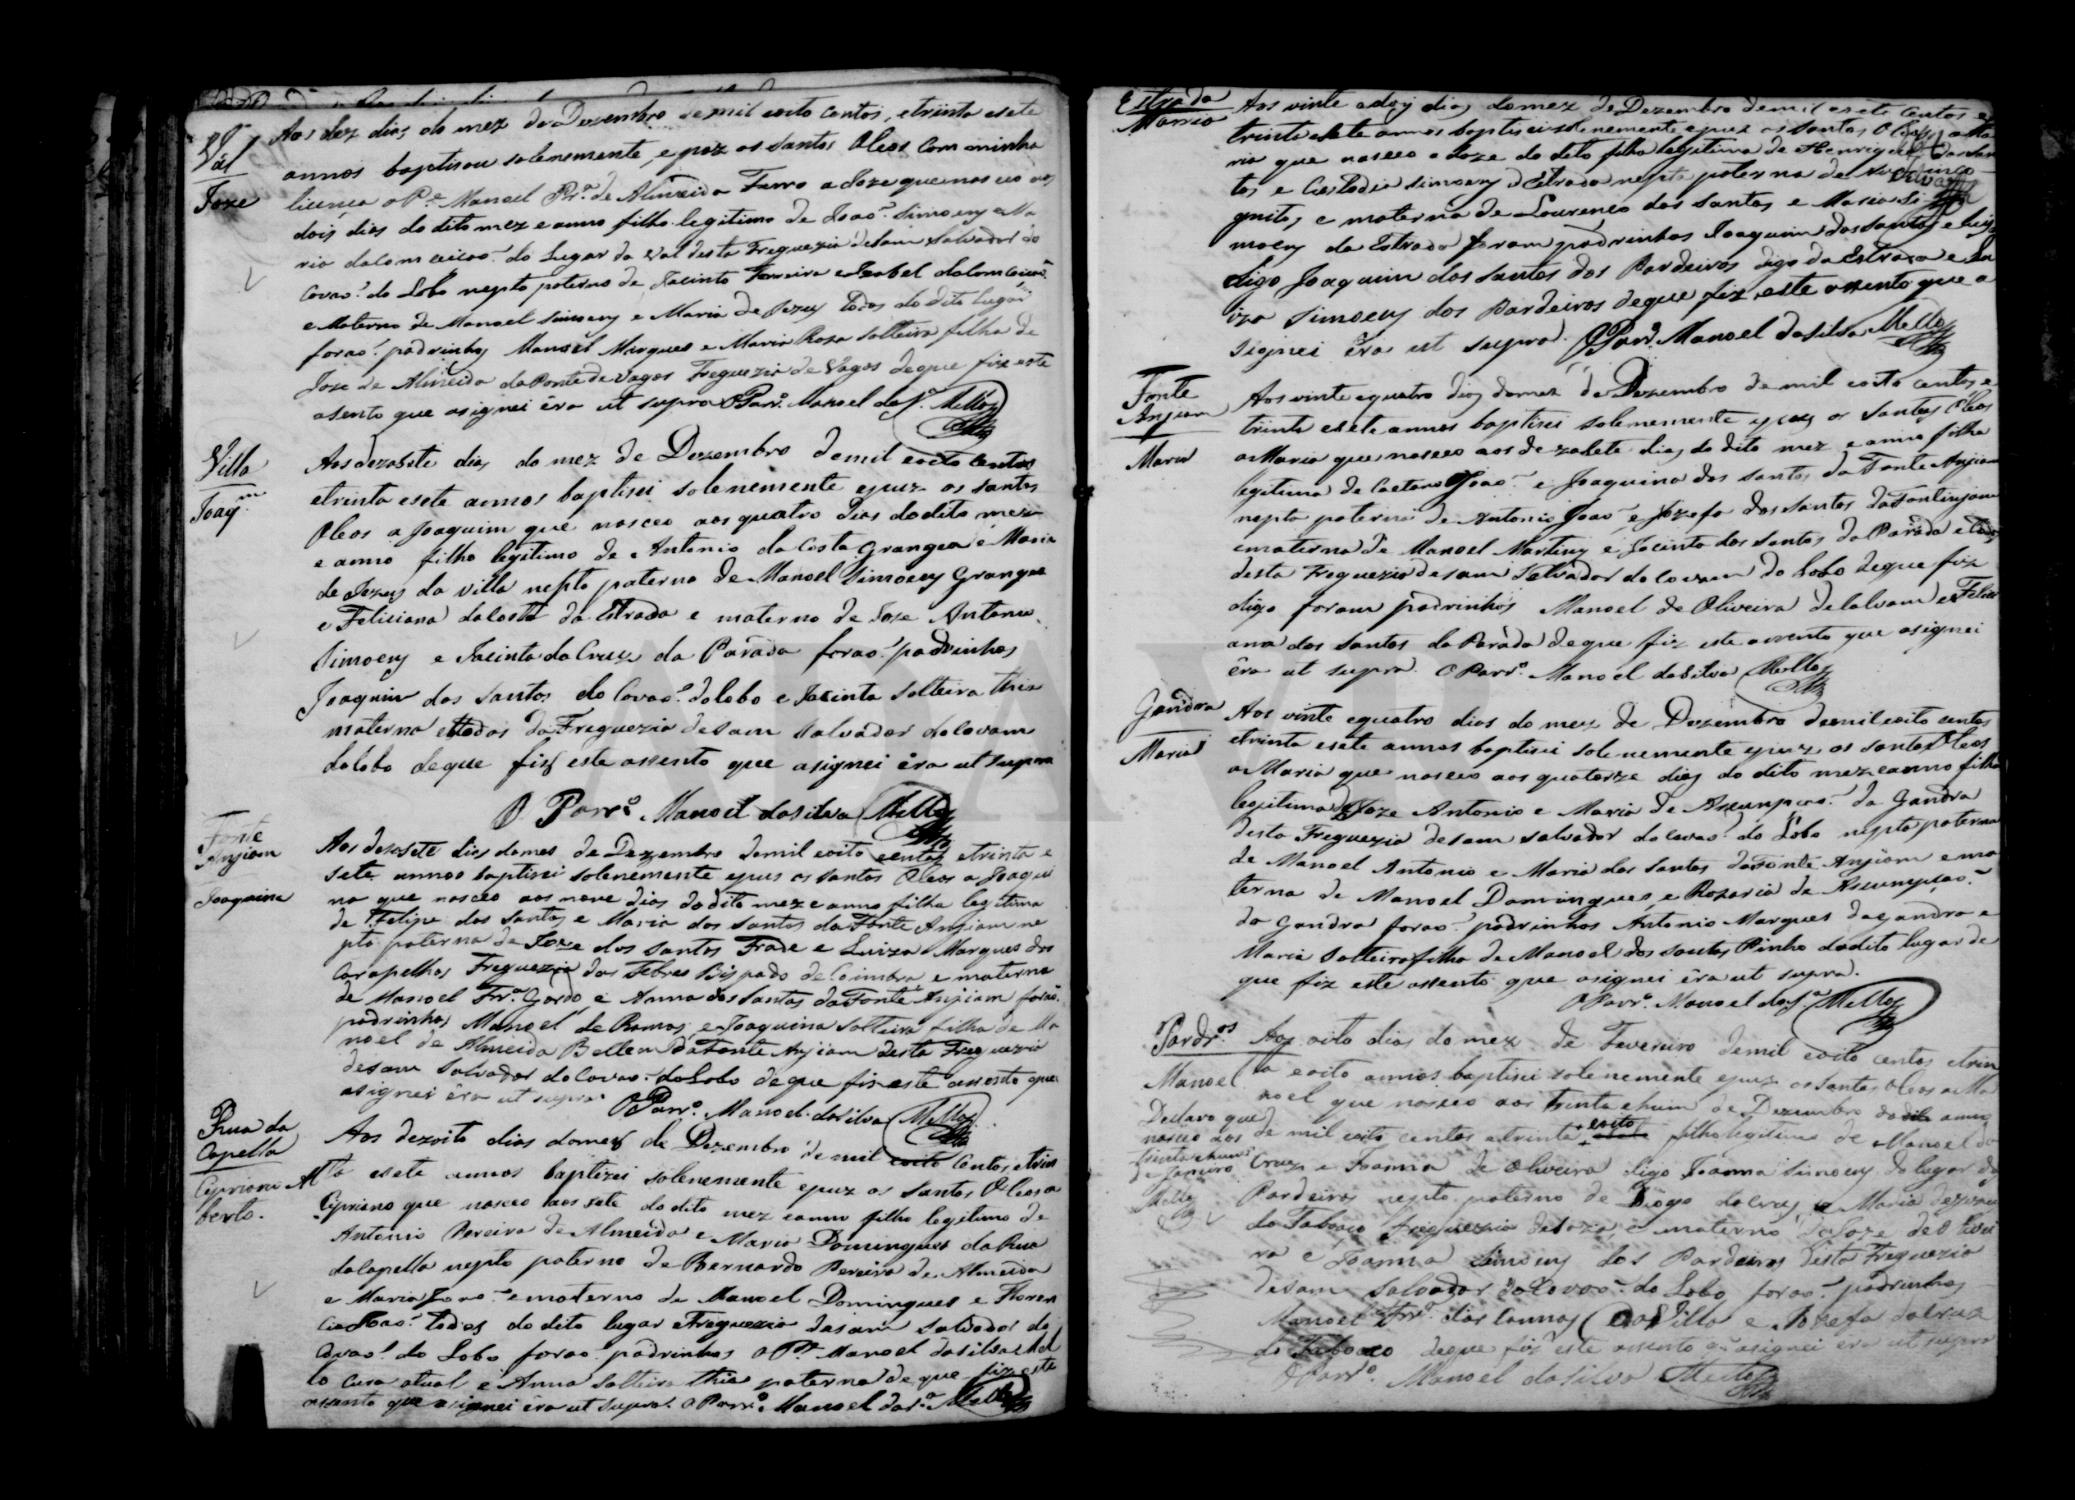 Vál
Joze
Aos dez dias do mez de Dezembro de mil eoito centos, etrinta esete
annos baptisou solenemente, e poz os santos Oleos com minha
licença o Pe. Manoel Frra. de Almeida Ferro a Joze que nasceo aos
dois dias do dito mez e anno filho legitimo de Joaõ Simoens e Ma
ria da Comceicaõ do Lugar da Val desta Freguezia de Sam Salvador do
Covaõ do Lobo nepto paterno de Jacinto Ferreira e Izabel da Comceicaõ
e Materno de Manoel Simoens e Maria de Jezus todos do dito lugar
foraõ padrinhos Manoel Marques e Maria Roza solteira filha de
Joze de Almeida da Ponte de Vagos Freguezia de Vagos de que fiz este
asento que asignei êra ut supra O Parro. Manoel da Sa. Mello
Villa
Joaqm.
Aos dezasete dias do mez de Dezembro de mil eoito centos
etrinta esete annos baptisei solenemente epuz os santos
Oleos a Joaquim que nasceo aos quatro dias do dito mez
e anno filho legitimo de Antonio da Costa Grangea e Maria
de Jezus da Villa nepto paterno de Manoel Simoens Grangea
e Feliciana da Costa da Estrada e materno de Joze Antonio
Simoens e Jacinta da Cruz da Parada foraõ padrinhos
Joaquim dos Santos do Covaõ do Lobo e Jacinta Solteira thia
materna e todos da Freguezia de Sam Salvador do Covam
do Lobo de que fiz este assento que asignei êra ut supra
O Parro. Manoel da Silva Mello
Fonte
Anjiam
Joaquina
Aos dezasete dias do mes de Dezembro de mil eoito centos etrinta e
sete annos baptisei solenemente epus os santos Oleos a Joaqui
na que nasceo aos nove dias do dito mez e anno filha legitima
de Felipe dos Santos e Maria dos Santos da Fonte Anjiam ne
pta paterna de Joze dos Santos Frade e Luiza Marques dos
Carapelhos Freguezia das Febres Bispado de Coimbra e materna
de Manoel Frra. Gordo e Anna dos Santos da Fonte Anjiam foraõ
padrinhos Manoel de Ramos e Joaquina Solteira filha de Ma
noel de Almeida Bellem da Fonte Anjiam desta Freguezia
de Sam Salvador do Covaõ do Lobo de que fiz este assento que
asignei êra ut supra O Parro. Manoel da Silva Mello
Rua da
Capella
Cipriano Al
berto.
Aos dezoito dias do mez de Dezembro de mil eoito Centos etrin
ta esete annos baptizei solenemente epuz os Santos Oleos a
Cipriano que nasceo aos sete do dito mez e anno filho legitimo de
Antonio Pereira de Almeida e Maria Domingues da Rua
da Capella nepto paterno de Bernardo Pereira de Almeida
e Maria Joaõ e materno de Manoel Domingues e Floren
cia Joaõ todos do dito lugar e Freguezia de Sam Salvador do
Covaõ do Lobo foraõ padrinhos o Pe. Manoel da Silva Mel
lo Cura atual e Anna Solteira thia paterna de que fiz este
assento que asignei êra ut supra. O Parro. Manoel da Sa. Mello
Estrada
Maria
Aos vinte e dois dias do mez de Dezembro de mil esete centos e
trinta esete annos baptisei solenemente epuz os santos Oleos a Ma
ria que nasceo a doze do dito filha legitima de Henrique dos San
tos e Custodia Simoens d'Estrada nepta paterna de Avós inco
gnitos e materna de Lourenco dos Santos e Maria Si
moens da Estrada foram padrinhos Joaquim dos Santos e Luiza
digo Joaquim dos Santos dos Pardeiros digo da Estrada e Lu
iza Simoens dos Pardeiros de que fiz este assento que a
signei êra ut supra. O Parro. Manoel da Silva Mello
Fonte
Anjiam
Maria
Aos vinte equatro dias do mez de Dezembro de mil eoito centos e
trinta esete annos baptisei solenemente epuz os Santos Oleos
a Maria que nasceo aos dezasete dias do dito mez e anno filha
legitima de Caetano Joaõ e Joaquina dos Santos da Fonte Anjiam
nepta paterna de Antonio Joaõ e Jozefa dos Santos da Fontinjiam
e materna de Manoel Martins e Jacinta dos Santos da Parada e todos
desta Freguezia de Sam Salvador do Covam do Lobo de que fiz
digo foram padrinhos Manoel de Oliveira de Calvam e Felici
ana dos Santos da Parada de que fiz este assento que asignei
êra ut supra. O Parro. Manoel da Silva Mello
Gandra
Maria
Aos vinte equatro dias do mez de Dezembro de mil eoito centos
etrinta esete annos baptisei solenemente epuz os santos Oleos
a Maria que nasceo aos quatorze dias do dito mez e anno filha
legitima de Joze Antonio e Maria de Assumpcaõ da Gandra
desta Freguezia de Sam Salvador do Covaõ do Lobo nepta paterna
de Manoel Antonio e Maria dos Santos da Fonte Anjiam e ma
terna de Manoel Domingues e Rozaria de Assumpçaõ
da Gandra foraõ padrinhos Antonio Marques da Gandra e
Maria Solteira filha de Manoel dos Santos Pinho do dito lugar de
que fiz este assento que asignei êra ut supra.
O Parro. Manoel da Sa. Mello
Pardros.
Manoel
Declaro que
nasceo aos
trinta e hum
de Janeiro
Mello
Aos oito dias do mez de Fevereiro de mil eoito centos etrin
ta eoito annos baptisei solenemente epuz os Santos Oleos a Ma
noel que nasceo aos trinta e hum de Dezembro do dito anno
de mil eoito centos e trinta e oito filho legitimo de Manoel da
Cruz e Joanna de Oliveira digo Joanna Simoens do lugar dos
Pardeiros nepto paterno de Diogo da Cruz e Maria de Jezus
do Taboaço Freguezia de Soza, e materno de Joze de Olivei
ra e Joanna Simoens dos Pardeiros desta Freguezia
de Sam Salvador do Covaõ do Lobo foraõ padrinhos
Manoel Frra. das Cannas da Villa e Jozefa da Cruz
do Taboaço de que fiz este assento q asignei êra ut supra
O Parro. Manoel da Silva Mello
ADAVR